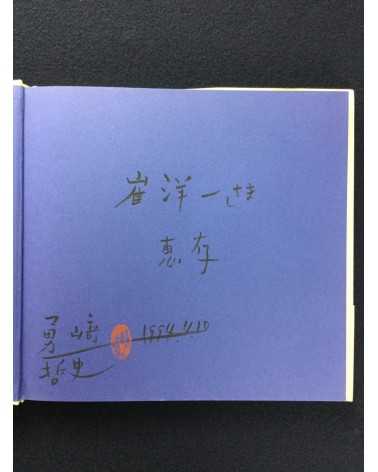 崔洋一さま
恵存
勇﨑 1994.4.10
哲史